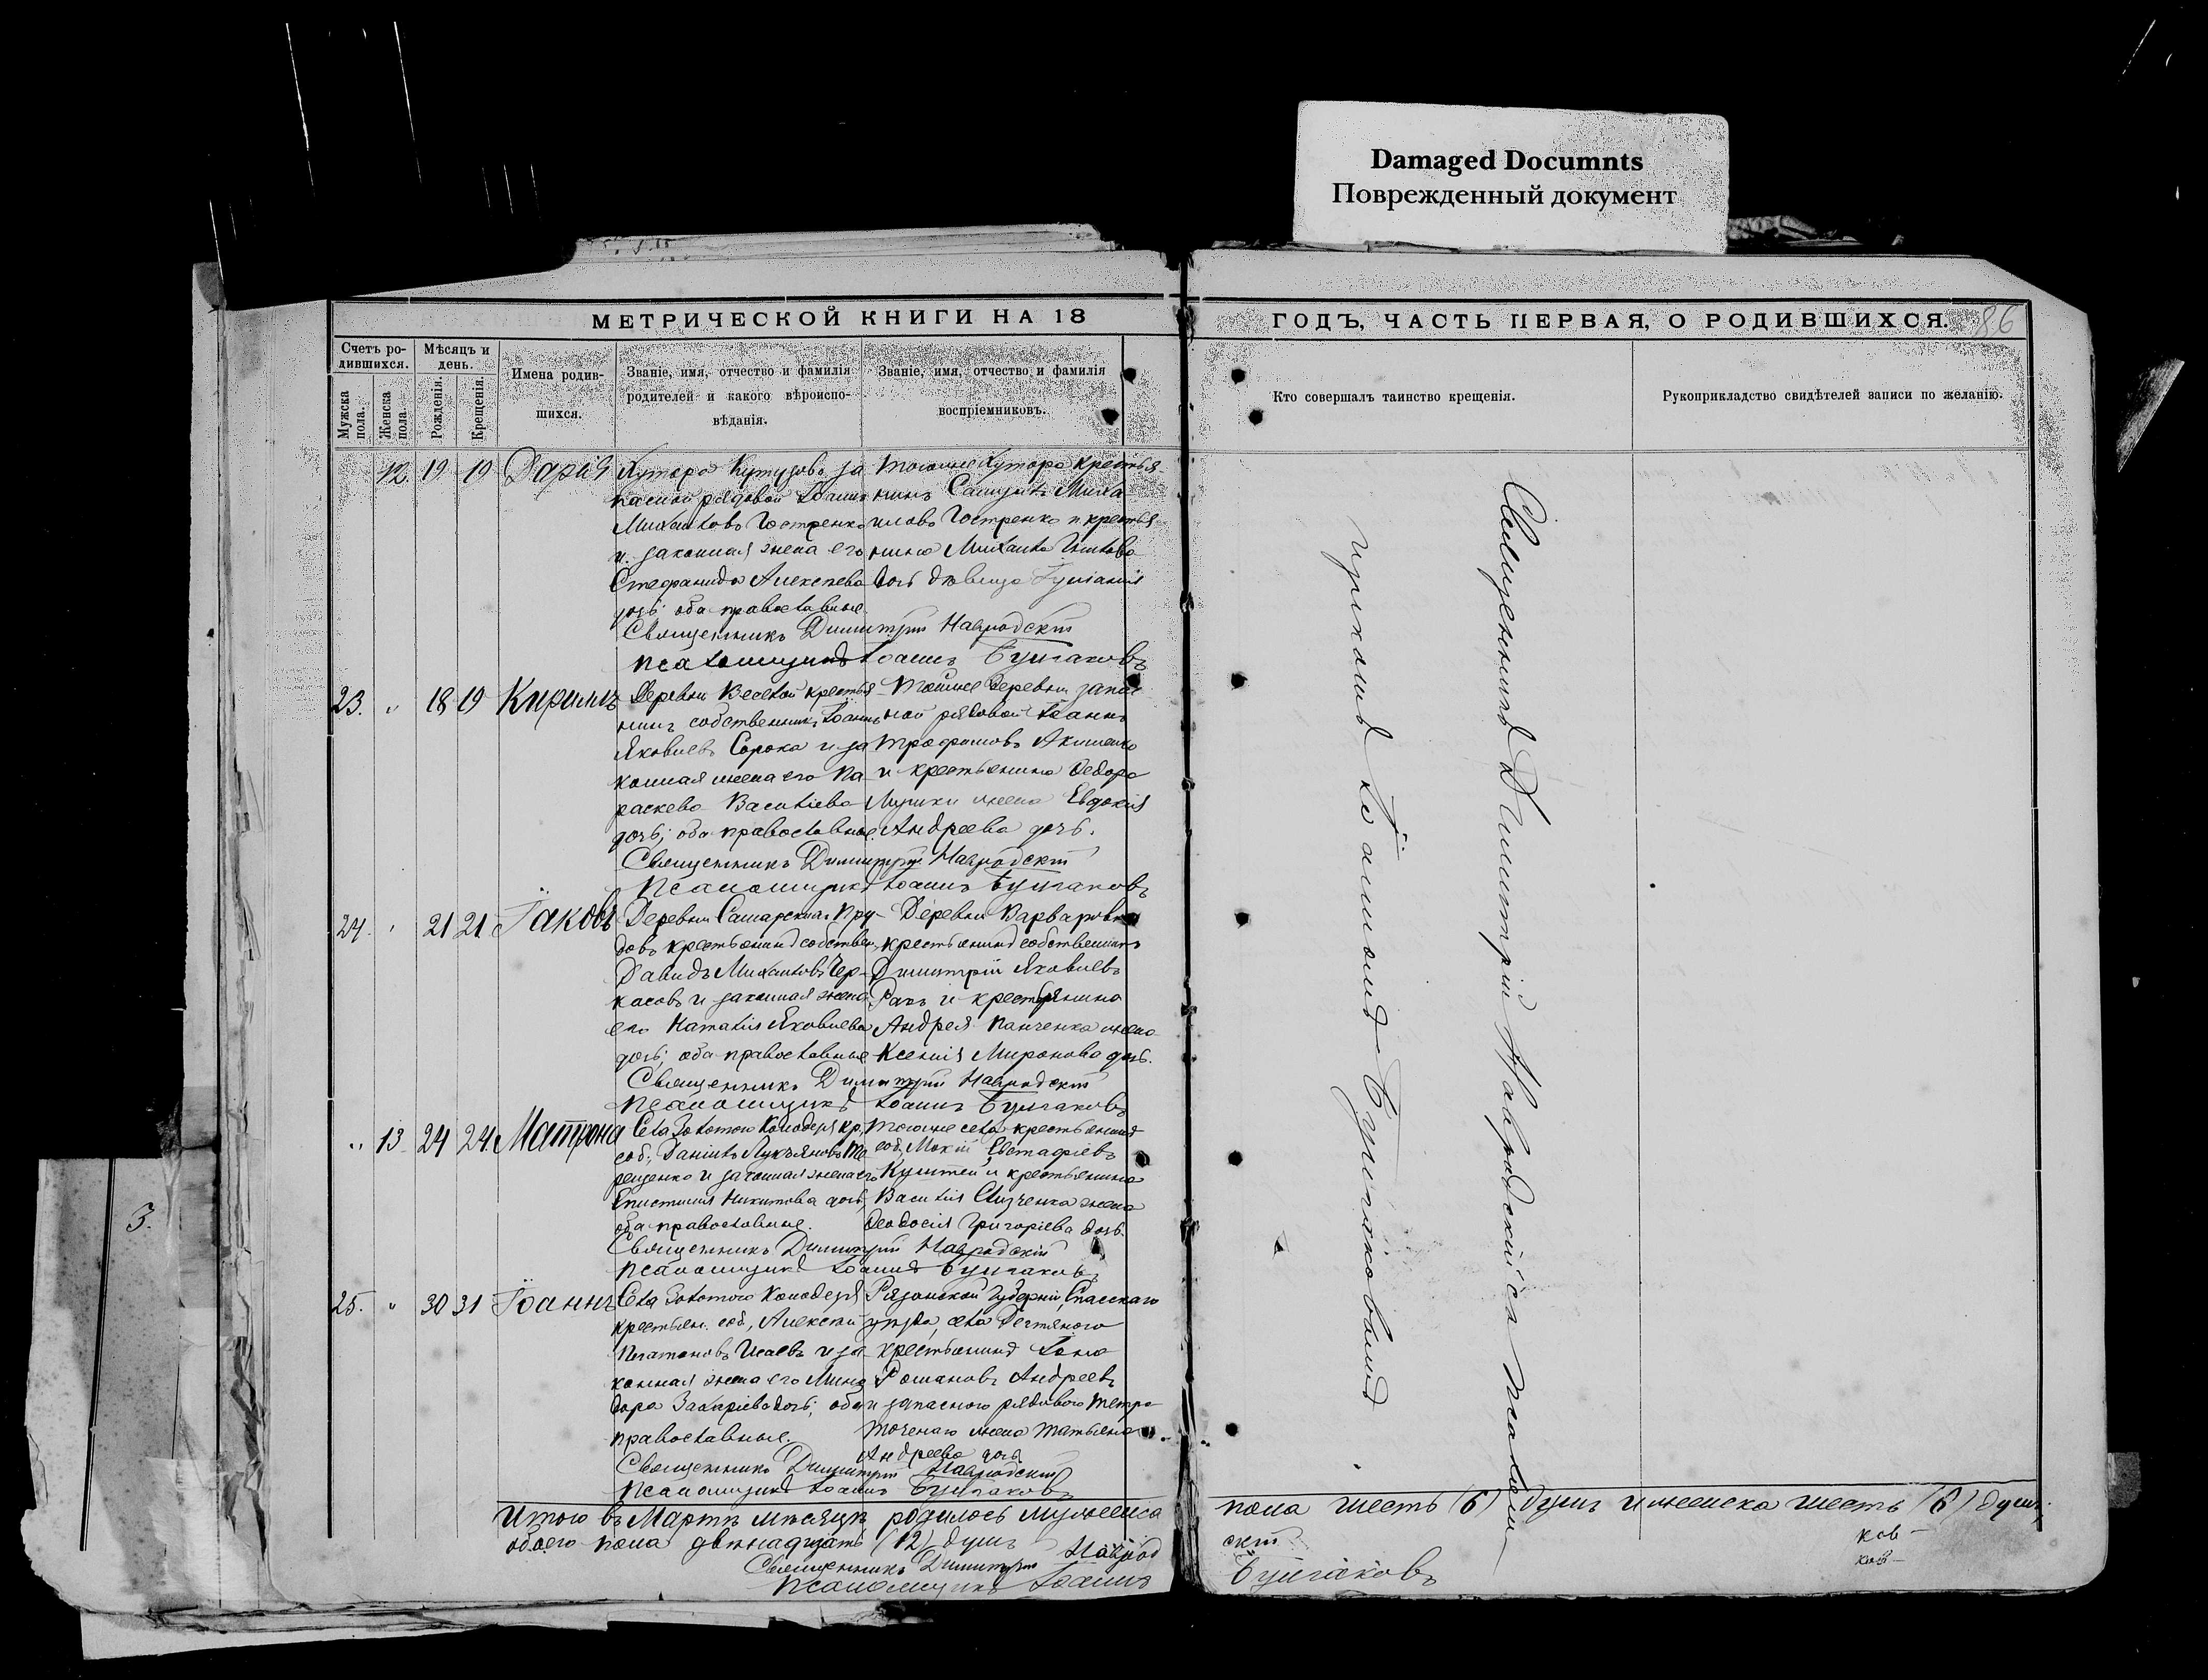 Damaged Documnts
Поврежденный документ
МЕТРИЧЕСКОЙ КНИГИ НА 18
ГОДЪ, ЧАСТЬ ПЕРВАЯ, О РОДИВШИХСЯ.
86
Счетъ ро-
дившихся.
Мужска
пола.
Женска
пола.
Мѣсяцъ и
день.
Рожденія.
Крещенія.
Имена родив-
шихся.
Званіе, имя, отчество и фамилія
родителей и какого вѣроиспо-
вѣданія.
Званіе, имя, отчество и фамилія
воспріемниковъ.
Кто совершалъ таинство крещенія.
Рукоприкладство свидѣтелей записи по желанію.
12. 19 19 Дарія
Хутора Кутузова за
пасной рядовой Іоаннъ
Михаиловъ Гостренко
и законная жена его
Стефанида Алексѣева
дочь; оба православные.
тогоже Хутора крестья-
нинъ Самуилъ Миха
иловъ Гостренко и крестья
нина Михаила
дочь дѣвица Іуліанія
Священникъ Димитрій Навродскій
Псаломщикъ Іоаннъ Булгаковъ
23. „ 18 19 Кириллъ
Деревни Веселой крестья-
нинъ собственникъ Іоаннъ
Яковлевъ Сорока и за
конная жена его Па-
раскева Василіева
дочь; оба православные.
тойже деревни запас
ной рядовой Іоаннъ
Трофимовъ Акименко
и крестьянина Ѳедора
жена Евдокія
Андреева дочь.
Священникъ Димитрій Навродскій
Псаломщикъ Іоаннъ Булгаковъ
24. „ 21 21 Іаковъ
Деревни Самарскихъ Пру-
довъ крестьянинъ собствен.
Давидъ Михаиловъ Чер-
касовъ и законная жена
его Наталія Яковлева
дочь; оба православные
Деревни Варваровки
крестьянинъ собственникъ
Димитрій Яковлевъ
Ракъ и крестьянина
Андрея Панченка жена
Ксенія Миронова дочь.
Священникъ Димитрій Навродскій
Псаломщикъ Іоаннъ Булгаковъ
„ 13 24 24. Матрона
Села Золотого Колодезя кр.
соб., Даніилъ Лукьяновъ Те
рещенко и законная жена его
Епистимія Никитова дочь,
оба православные.
тогоже села крестьянинъ
соб. Мокій Евстафіевъ
и крестьянина
Василія жена
Ѳеодосія Григоріева дочь.
Священникъ Димитрій Навродскій
Псаломщикъ Іоаннъ Булгаковъ
25. „ 30 31 Іоаннъ
Села Золотого Колодезя
крестьян. соб., Алексѣй
Платоновъ Исаевъ и за
конная жена его Мино
дора Захаріева дочь; оба
православные.
Рязанской Губерніи, Спасскаго
уѣзда, села
крестьянинъ Іона
Романовъ Андреевъ
и запасного рядового Петра
жена Татьяна
Андреева дочь
Священникъ Димитрій Навродскій
Псаломщикъ Іоаннъ Булгаковъ
Священникъ Димитрій Навродскій съ псалом-
щикомъ Іоанномъ Булгаковымъ
3.
Итого въ Мартѣ мѣсяцѣ родилось мужеска
пола шесть (6) душъ и женска шесть (6) душъ,
обоего пола двѣнадцать (12) душъ
Священникъ Димитрій Навродскій
Псаломщикъ Іоаннъ Булгаковъ